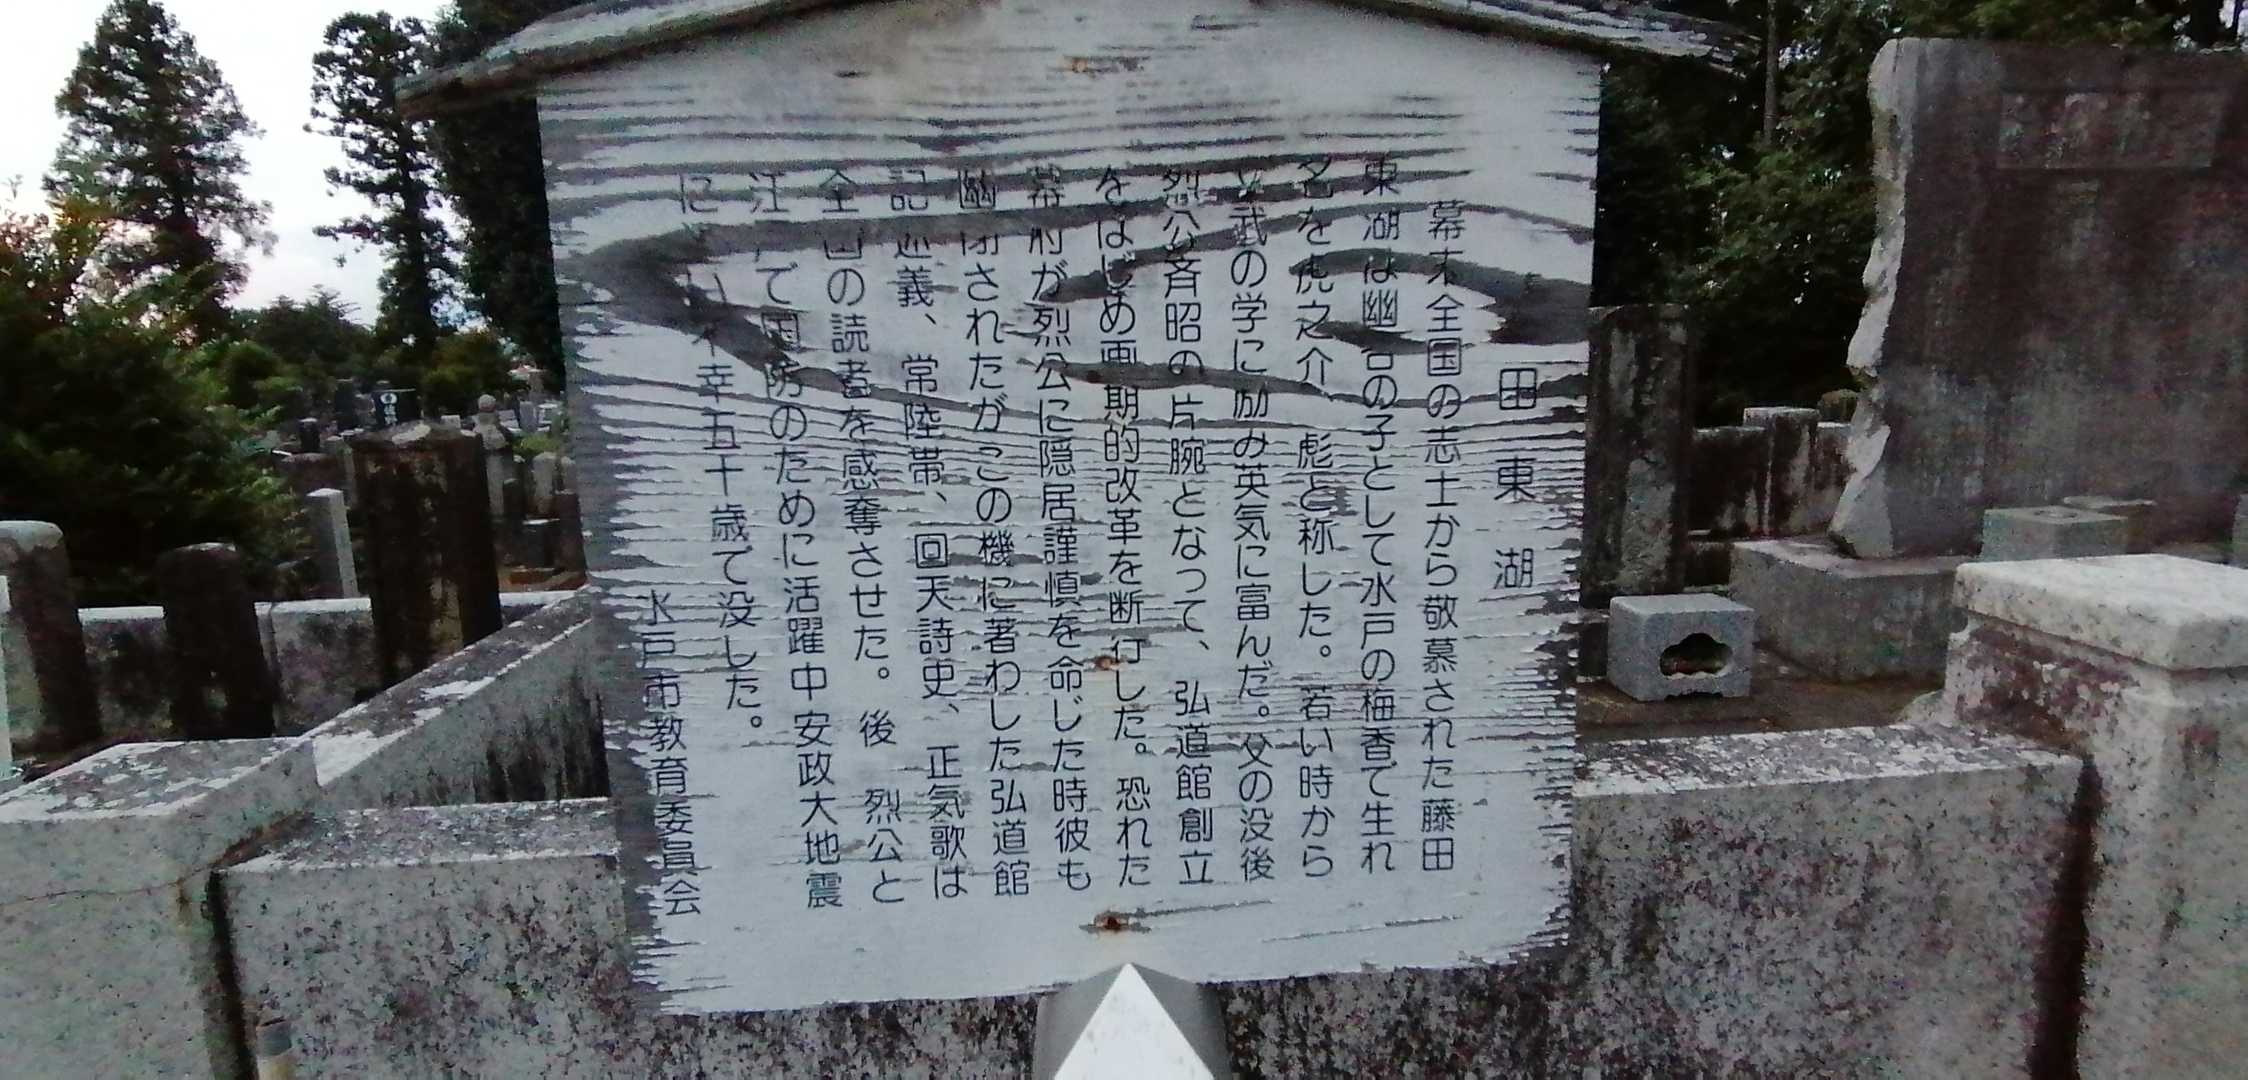 田東湖
幕末全国の志士から敬慕された藤田
東湖は幽谷の子として水戸の梅香で生れ
名を虎之介、彪と称した。若い時から
文武の学に励み英気に富んだ。父の没後
烈公斉昭の片腕となって、弘道館創立
をはじめ画期的改革を断行した。恐れた
幕府が烈公に隠居謹慎を命じた時彼も
幽閉されたがこの機に著わした弘道館
記述義、常陸帯、回天詩史、正気歌は
全国の読者を感奪させた。後 烈公と
江戸で国防のために活躍中安政大地震
に い不幸五十歳で没した。
水戸市教育委員会